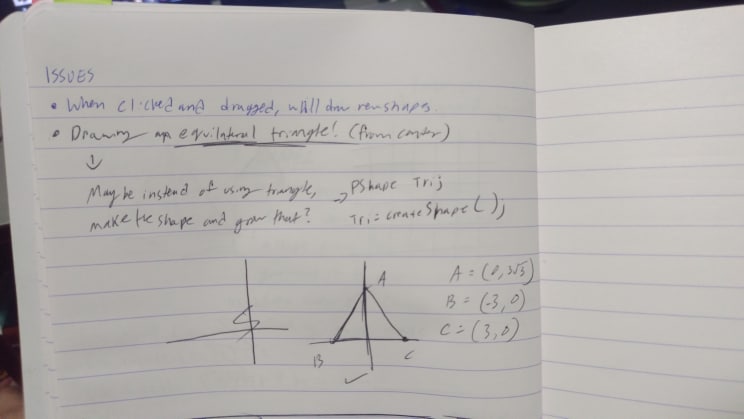 ISSUES
• When clicked and dragged, will draw new shapes.
• Drawing an equilateral triangle! (from center)
↓
Maybe instead of using triangle, → PShape Tri;
make the shape and grow that? Tri = createShape();
A
B
C
A = (0, 3√3)
B = (-3, 0)
C = (3, 0)